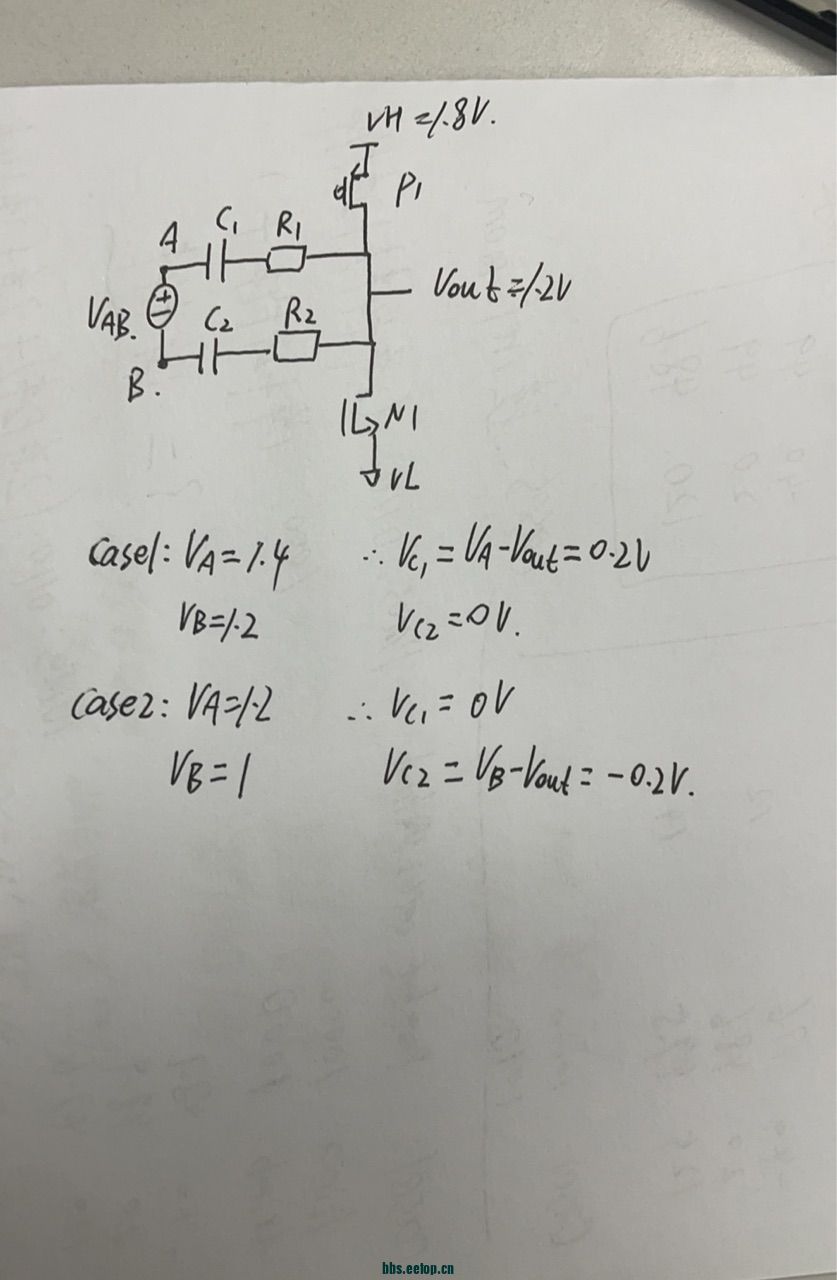 VH=1.8V.
P1
A
C1
R1
Vout=1.2V
VAB.
C2
R2
B.
N1
VL
Case1: VA=1.4 ∴ VC1=VA-Vout=0.2V
VB=1.2 VC2=0V.
Case2: VA=1.2 ∴ VC1=0V
VB=1 VC2=VB-Vout=-0.2V.
bbs.eetop.cn